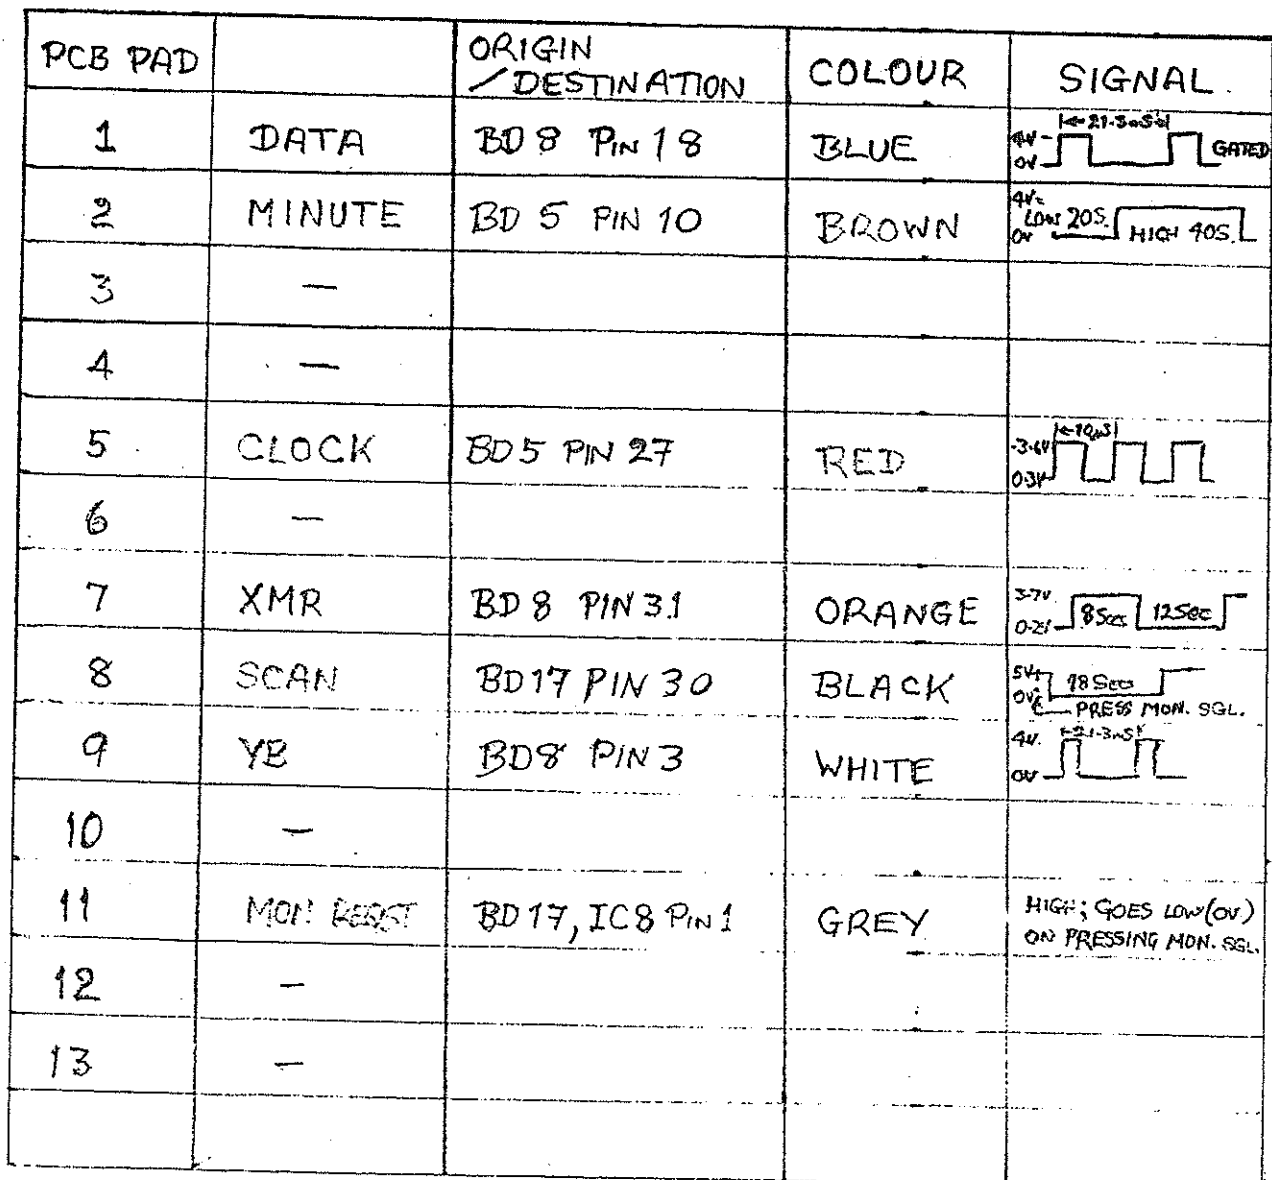 PCB PAD ORIGIN / DESTINATION COLOUR SIGNAL.
1 DATA BD 8 PIN 18 BLUE 4V 0V GATED
2 MINUTE BD 5 PIN 10 BROWN 4V 0V LOW 20S. HIGH 40S.
3 —
4 —
5 CLOCK BD 5 PIN 27 RED 3.6V 0.3V
6 —
7 XMR BD 8 PIN 31 ORANGE 3.7V 8 Secs 12 Sec
8 SCAN BD 17 PIN 30 BLACK 5V 0V 18 Secs
PRESS MON. SGL.
9 YB BD 8 PIN 3 WHITE 4V. 0V
10 —
11 MON BD 17, IC 8 PIN 1 GREY HIGH; GOES LOW (0V)
ON PRESSING MON. SGL.
12 —
13 —